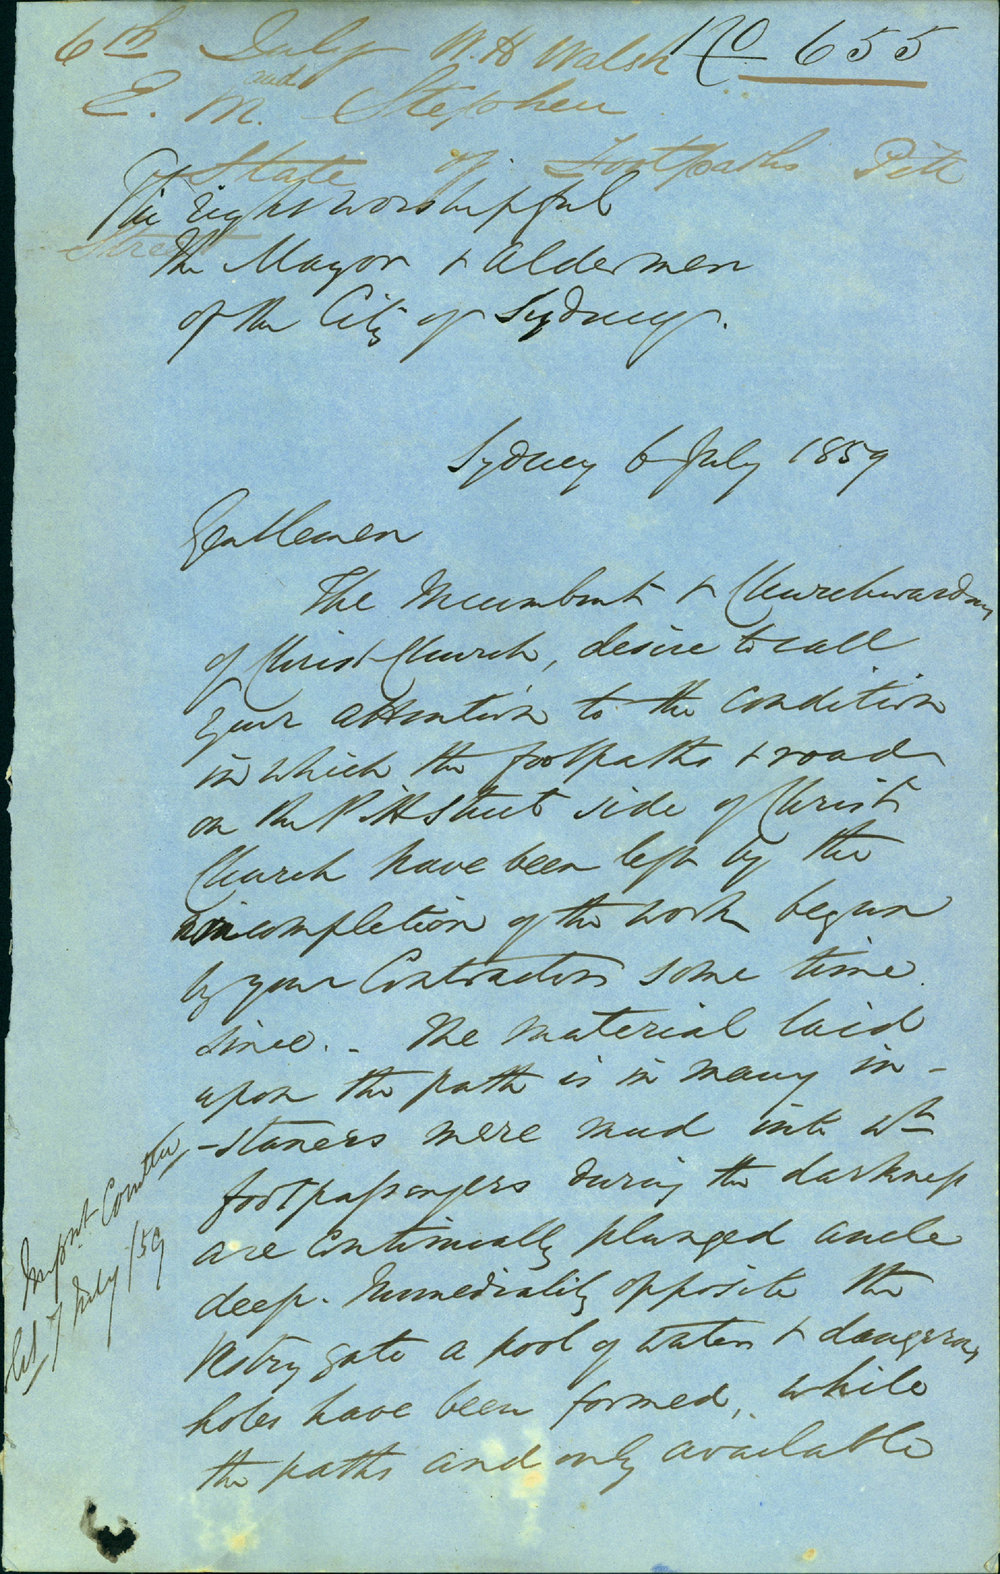 6th July W. H Walsh No 655
and
E. M. Stephen
State of Footpaths Pitt
Street
The right worshipful
the Mayor & Aldermen
of the City of Sydney.
Sydney 6 July 1859
Gentlemen
The Incumbent & Churchwardens
of Christ Church, desire to call
your attention to the condition
in which the footpaths & road
on the Pitt Street side of Christ
Church have been left by the
incompletion of the work begun
by your Contractors some time
since. - The material laid
upon the path is in many in-
-stances mere mud into wh
footpassengers during the darkness
are continually plunged ancle
deep. Immediately opposite the
Vestry gate a pool of water & dangerous
holes have been formed, while
the paths and only available
Impvt Comttee
7 July /59